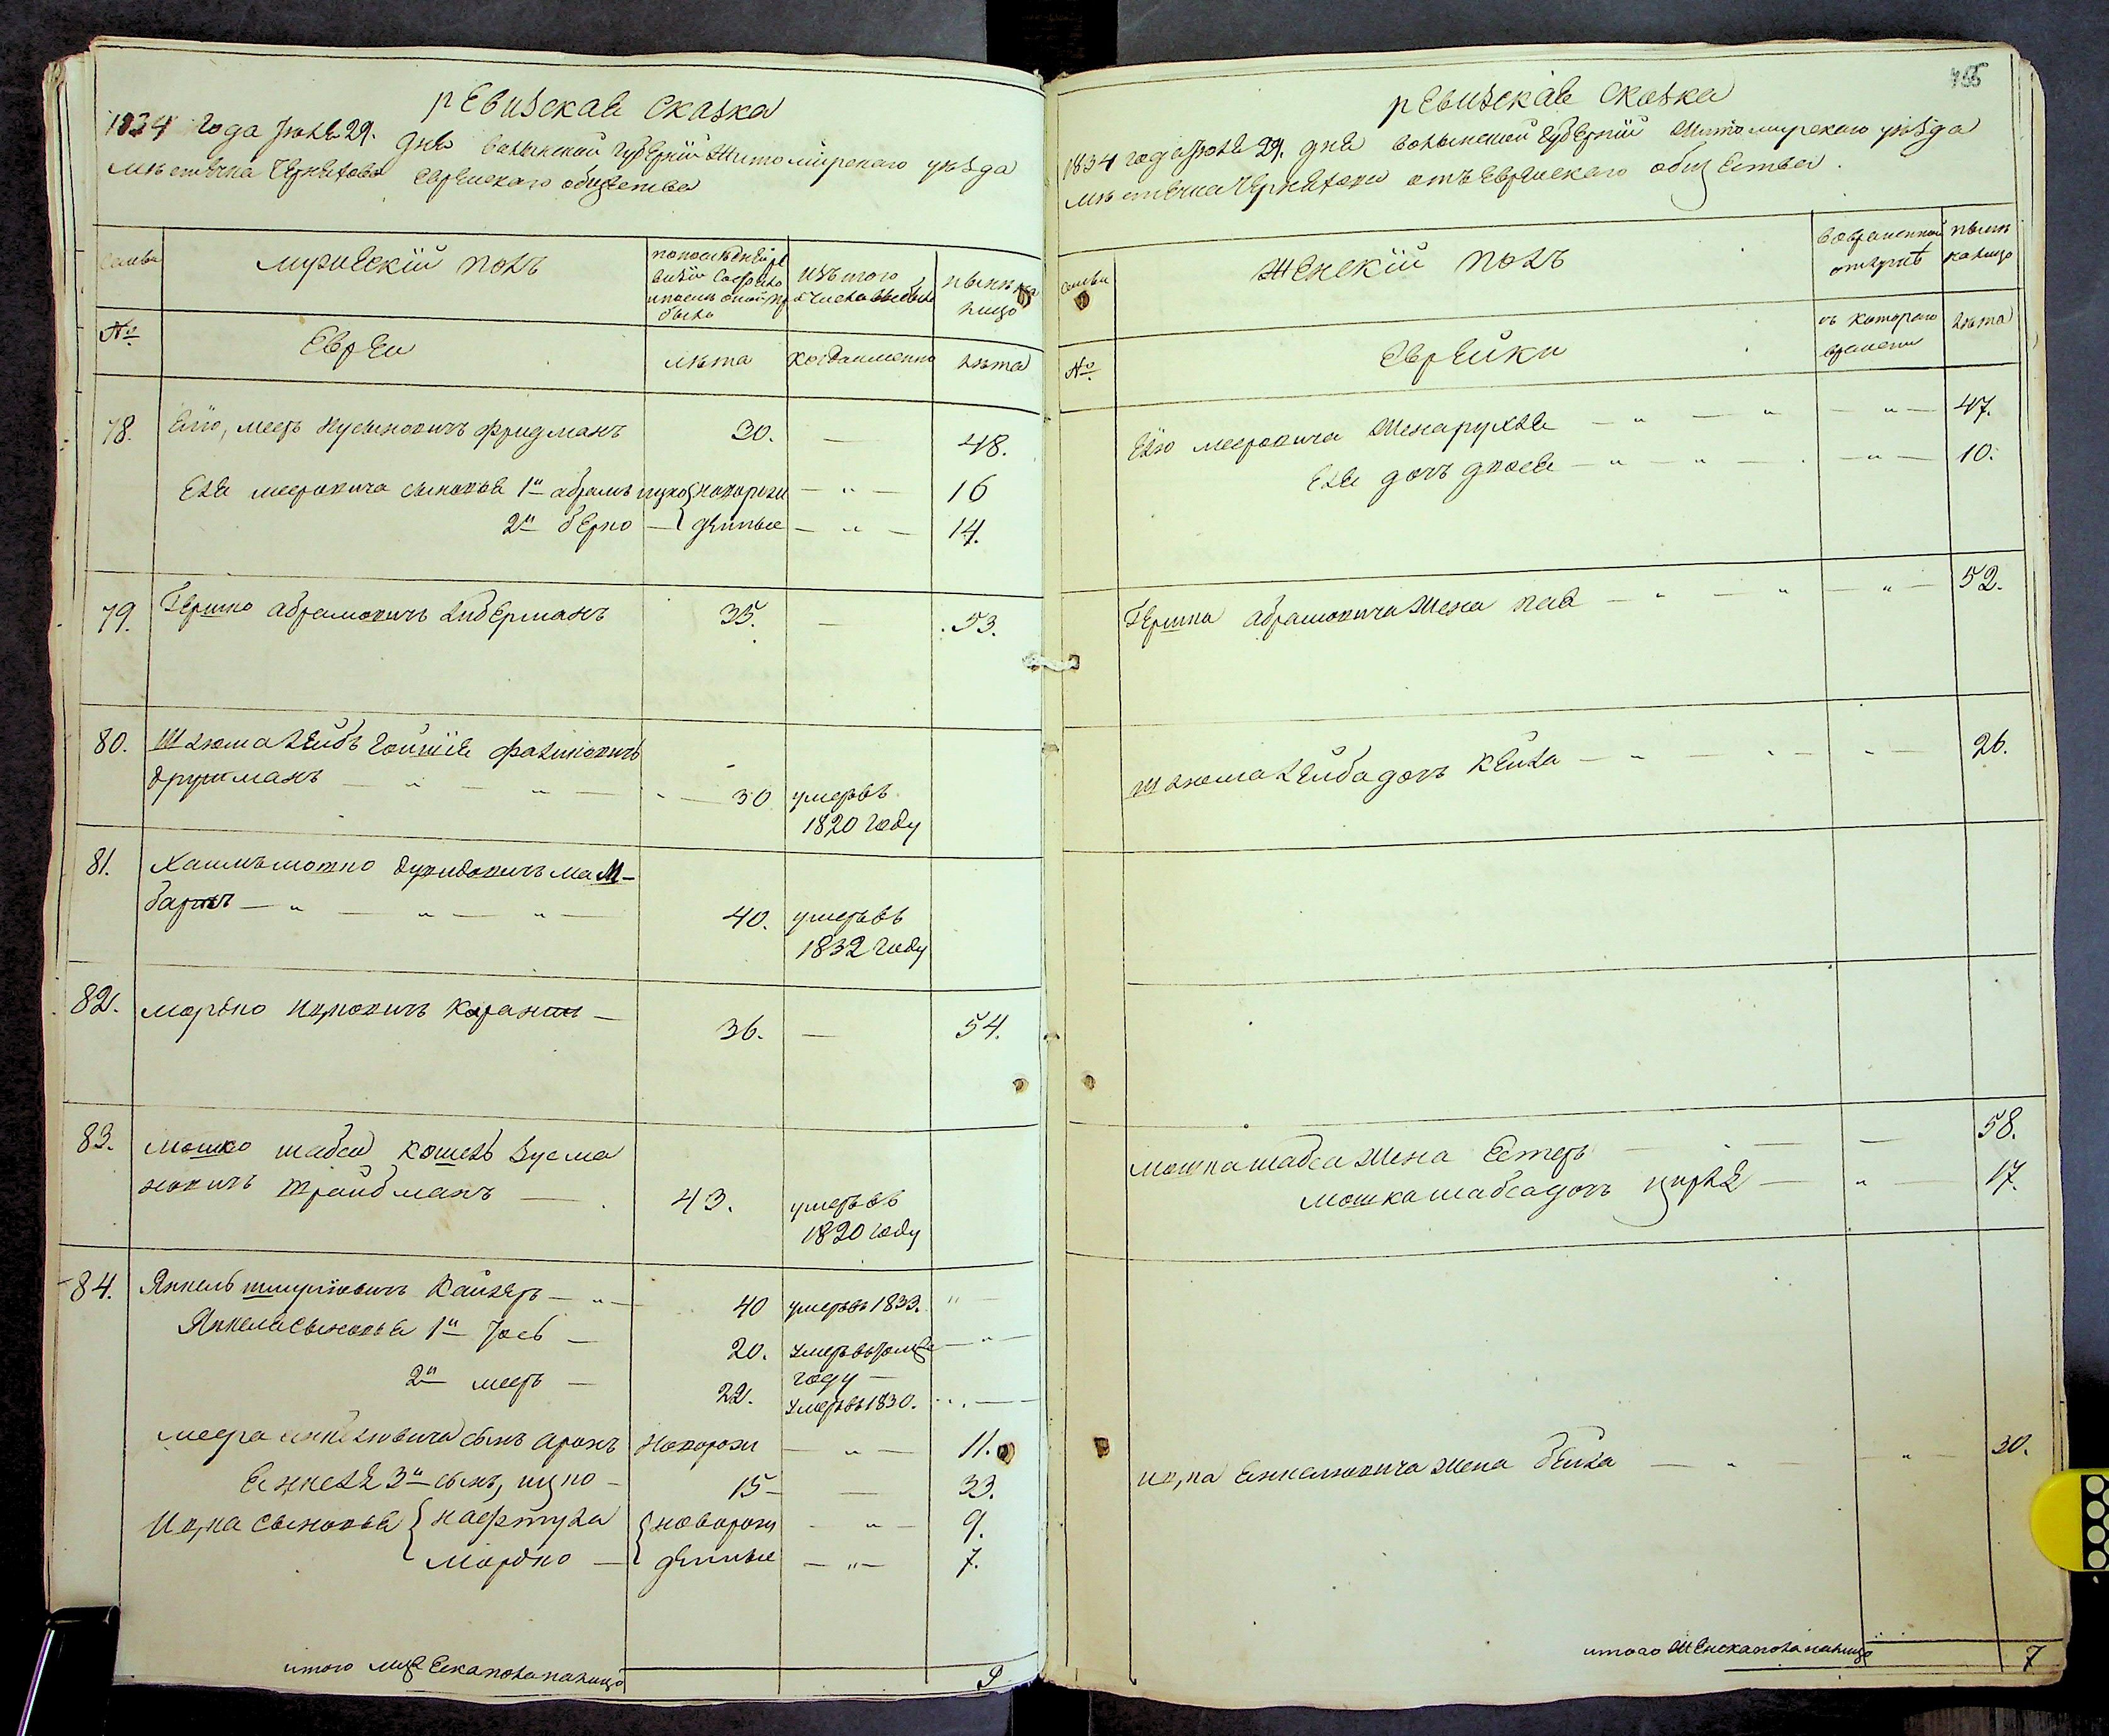 ревизская сказка
1834 года Июля 29. дня волынской губернїи Житомирскаго уѣзда
мѣстечка Чернехова еврейскаго общества
семьи
мужескїй полъ
по последней ре
визїи состояло
и после оной при
было
изъ того
числа выбыло
нынѣ на
лицо
№
Евреи
лѣта
когда именно
лѣта
78. Елїо, меер Нусыновичъ фридманъ 30. — 48.
Еля мееровича сыновья 1й абрамъ ицко новорож — " — 16
2й берко — денные — " — 14.
79. Гершко абрамовичъ Либерманъ 35. — 53.
80. Шлюма Лейбъ
друшманъ — " — " — 30 умеръ въ
1820 году
81. Хаимъ мотко дувидовичъ
40. умеръ въ
1832 году
82. мордко ицковичъ — 36. — 54.
83. мошко шабса кошель Зусма
новичъ трайбманъ — 43. умеръ въ
1820 году
84. Янкель шмулїовичъ — " — 40 умеръ въ 1833. " —
Янкеля сыновья 1й Іось — 20. умеръ въ
году —
2й меер — 22. умеръ въ 1830.
меера янкелювича сынъ аронъ новорож — " — 11.
Янкеля 3й сынъ, ицко — 15 — 33.
Ицка сыновья нафтула новорож — " — 9.
мордко — денные — " — 7.
итого мужеска пола налицо 9
ревизская сказка
1834 года Июля 29. дня волынской губернїи Житомирскаго уѣзда
мѣстечка Чернехова отъ еврейскаго общества.
семьи
женскїй полъ
во временной
отлучкѣ
нынѣ
налицо
№
еврейки
съ котораго
времени
лѣта
Елїо мееровича жена рухля — " — " — " — 47.
Еля дочь двося — " — " — " — 10.
Гершка абрамовича жена пая — " — " — " — 52.
шлюма лейба дочь кейла — " — " — " — 26.
мошка шабса жена Естеръ — — 58.
мошка шабса дочь цирля — " — 17.
ицка янкелювича жена бейла — " — " — 30.
итого женска пола налицо 7